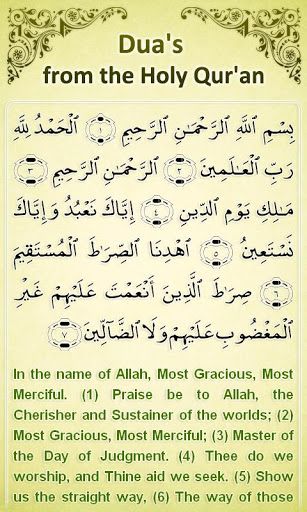 Dua's
from the Holy Qur'an
بِسْمِ اللَّهِ الرَّحْمَـٰنِ الرَّحِيمِ ١ الْحَمْدُ لِلَّهِ
رَبِّ الْعَـٰلَمِينَ ٢ الرَّحْمَـٰنِ الرَّحِيمِ ٣
مَـٰلِكِ يَوْمِ الدِّينِ ٤ إِيَّاكَ نَعْبُدُ وَإِيَّاكَ
نَسْتَعِينُ ٥ اهْدِنَا الصِّرَٰطَ الْمُسْتَقِيمَ
٦ صِرَٰطَ الَّذِينَ أَنْعَمْتَ عَلَيْهِمْ غَيْرِ
الْمَغْضُوبِ عَلَيْهِمْ وَلَا الضَّالِّينَ ٧
In the name of Allah, Most Gracious, Most
Merciful. (1) Praise be to Allah, the
Cherisher and Sustainer of the worlds; (2)
Most Gracious, Most Merciful; (3) Master of
the Day of Judgment. (4) Thee do we
worship, and Thine aid we seek. (5) Show
us the straight way, (6) The way of those